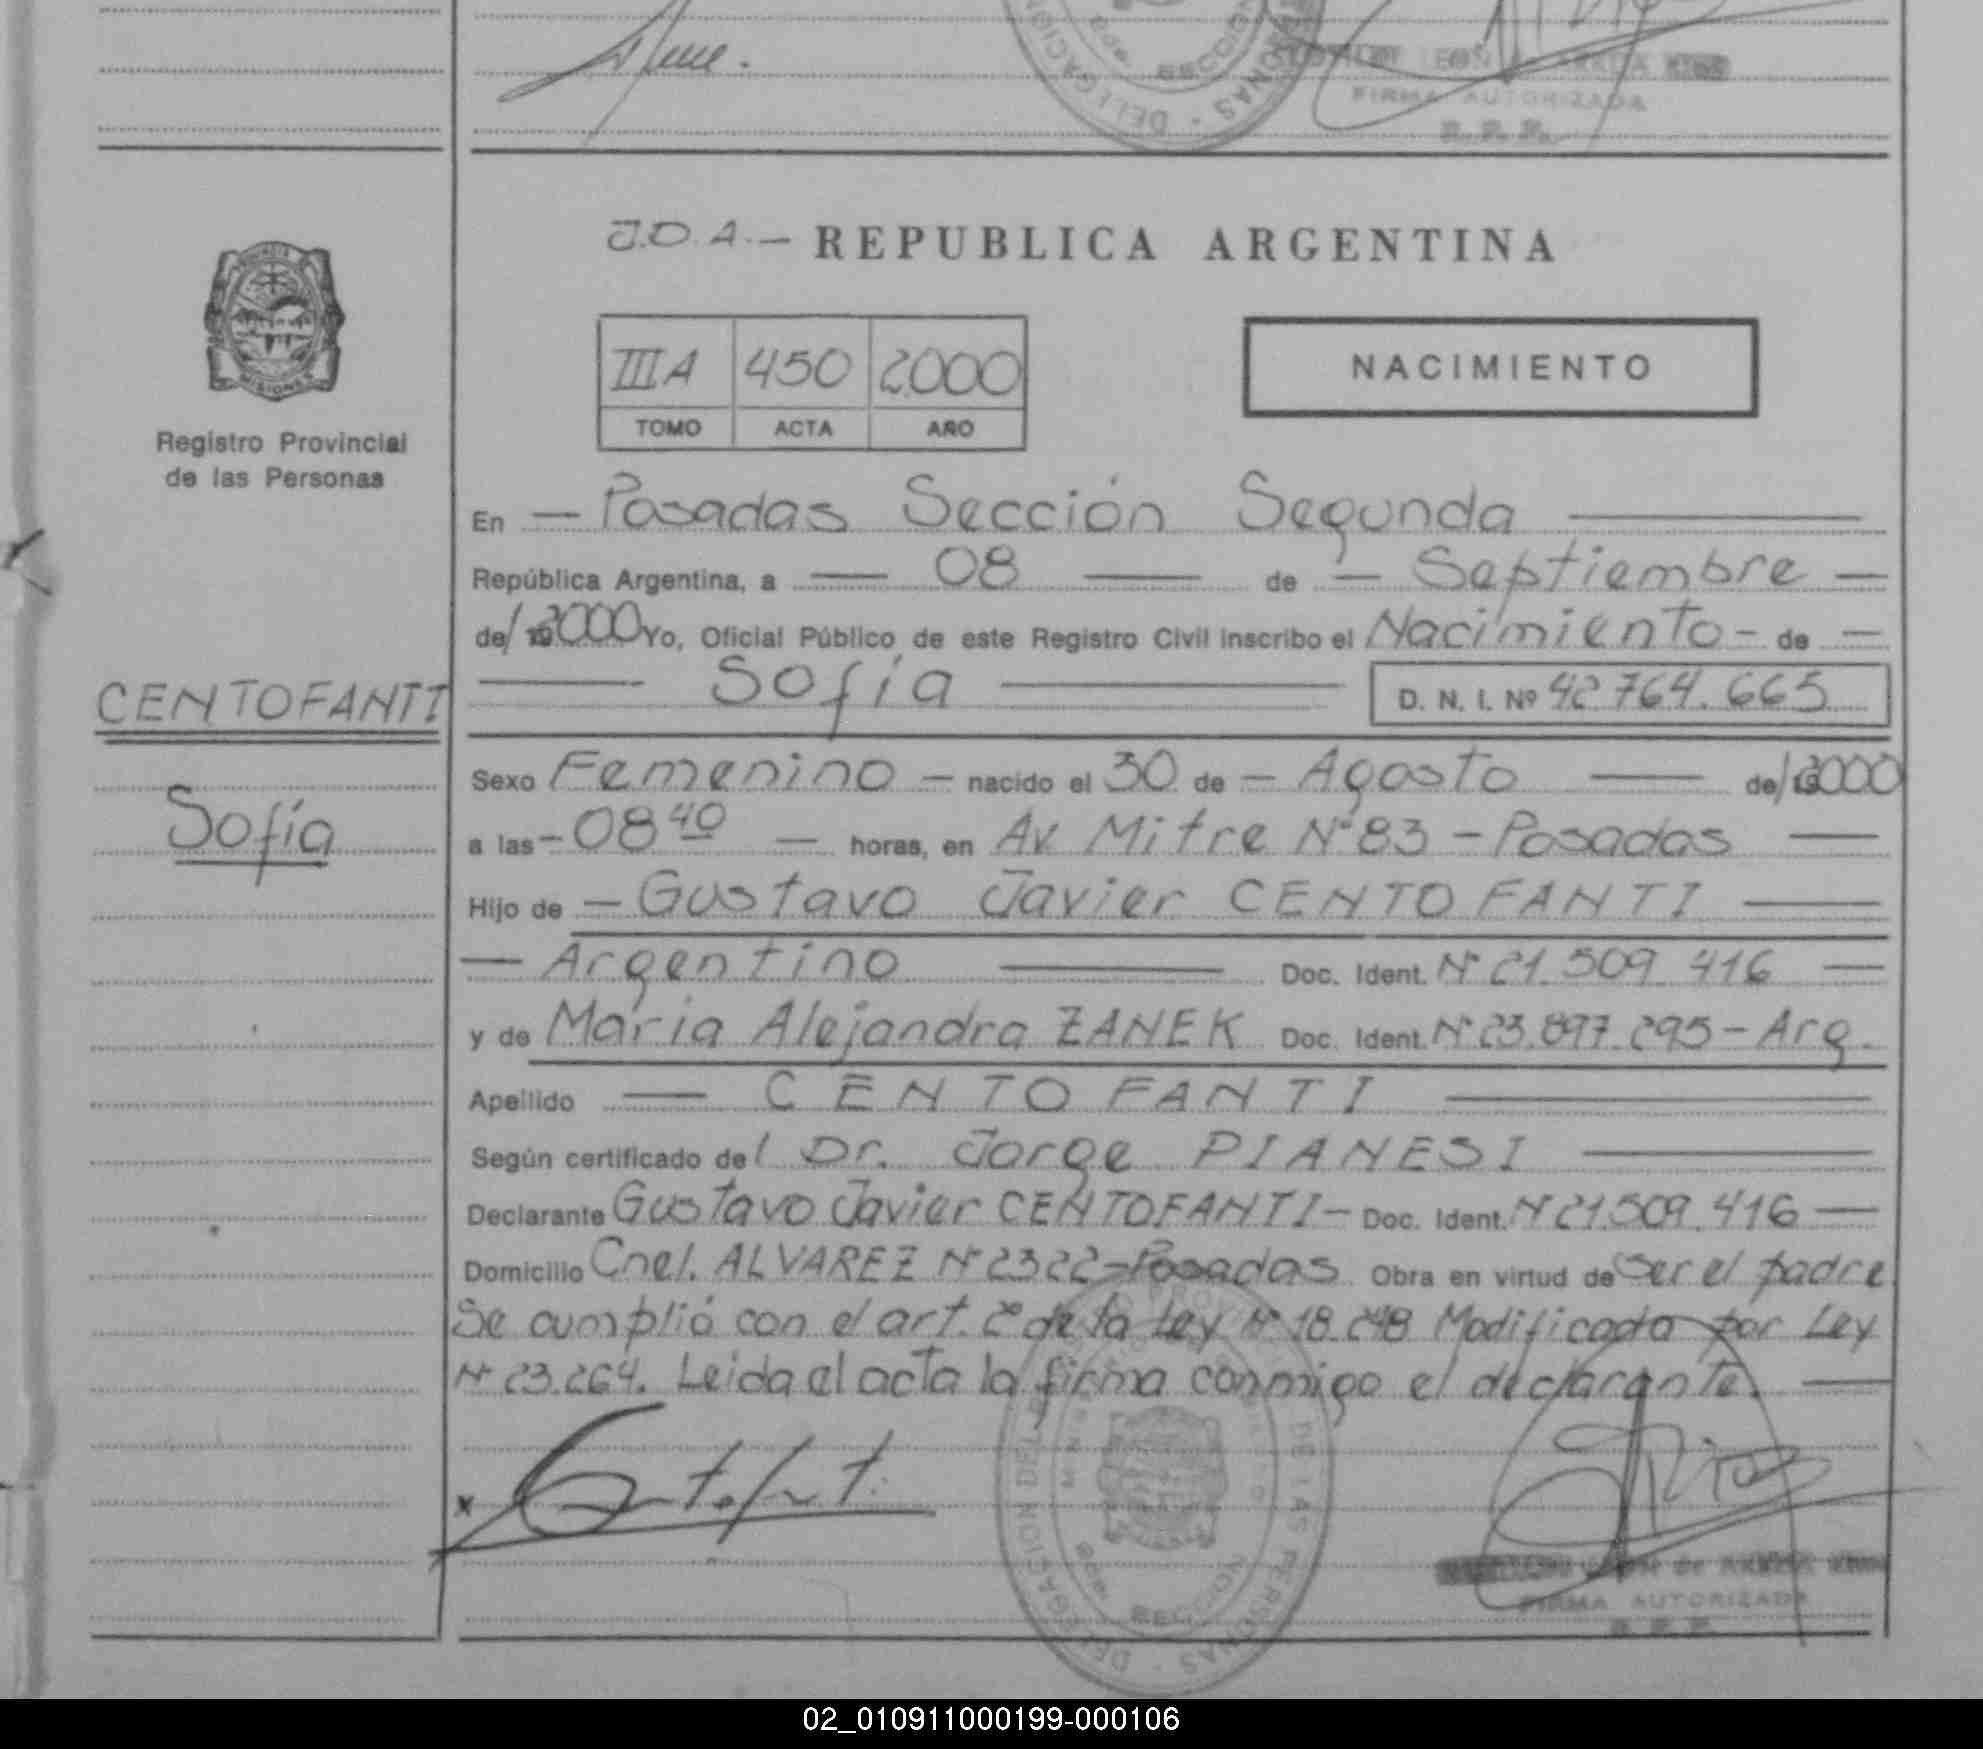 FIRMA AUTORIZADA
J.D.A.- REPUBLICA ARGENTINA
PROVINCIA
MISIONES
Registro Provincial
de las Personas
III A 450 2.000
TOMO ACTA AÑO
NACIMIENTO
En — Posadas Sección Segunda —
República Argentina, a — 08 — de — Septiembre —
de/ 2000 Yo, Oficial Público de este Registro Civil inscribo el Nacimiento - de —
CENTOFANTI
— Sofía — D. N. I. Nº 42.764.665
Sofía
Sexo Femenino — nacido el 30 de — Agosto — de/ 2000
a las - 08 40 — horas, en Av. Mitre Nº 83 - Posadas —
Hijo de — Gustavo Javier CENTOFANTI —
— Argentino — Doc. Ident. Nº 21.509.416 —
y de María Alejandra ZANEK Doc. Ident. Nº 23.897.295 - Arg.
Apellido — CENTOFANTI —
Según certificado del Dr. Jorge PIANESI —
Declarante Gustavo Javier CENTOFANTI - Doc. Ident. Nº 21.509.416 —
Domicilio Cnel. ALVAREZ Nº 2322 - Posadas Obra en virtud de ser el padre
Se cumplió con el art. 2º de la Ley Nº 18.248 Modificada por Ley
Nº 23.264. Leida el acta la firma conmigo el declarante. —
x Centofanti
DELEGACION DEL REGISTRO PROVINCIAL DE LAS PERSONAS
SECCION
FIRMA AUTORIZADA
02_010911000199-000106